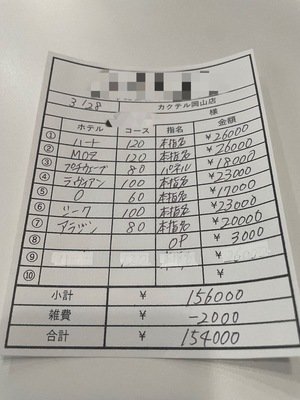 3/28 カクテル岡山店
様
ホテル コース 指名 金額
① ハート 120 本指名 ¥26000
② MOA 120 本指名 ¥26000
③ プチウェーブ 80 パネル ¥18000
④ ラヴィアン 100 本指名 ¥23000
⑤ O 60 本指名 ¥17000
⑥ シーク 100 本指名 ¥23000
⑦ アラジン 80 本指名 ¥20000
⑧ OP ¥3000
⑨
⑩
小計 ¥ 156000
雑費 ¥ -2000
合計 ¥ 154000